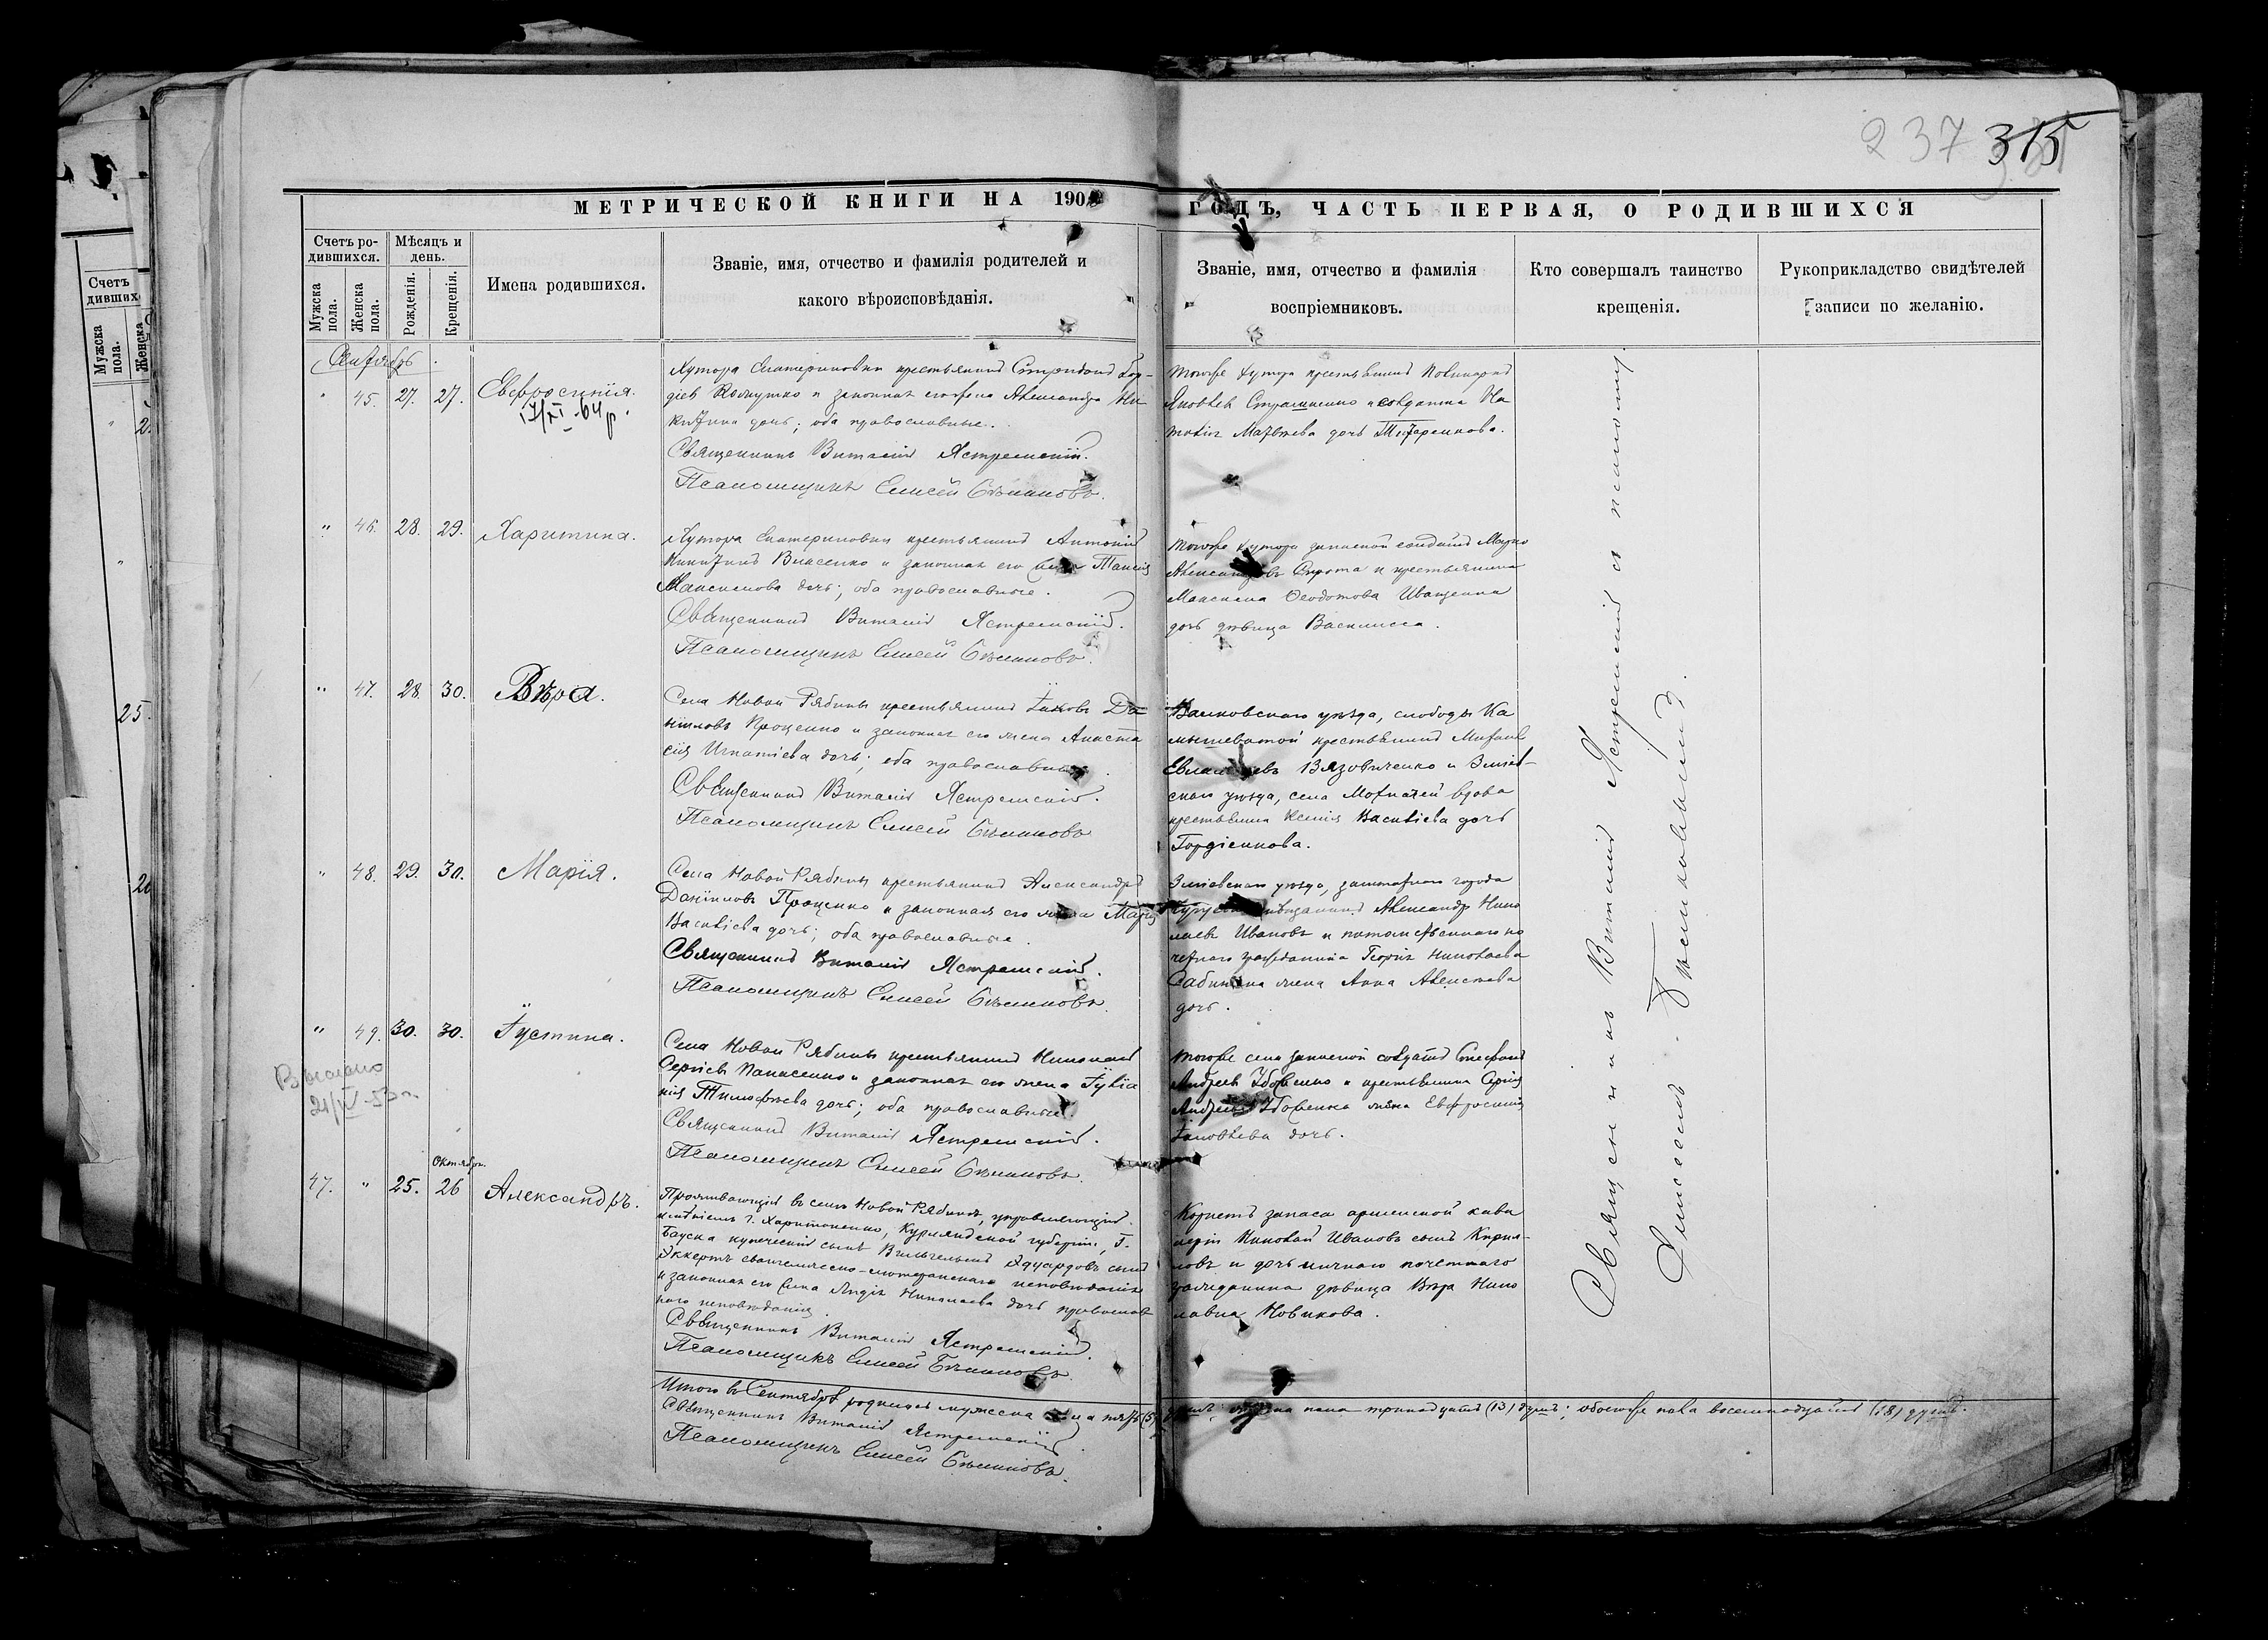 237 315
МЕТРИЧЕСКОЙ КНИГИ НА 190
ГОДЪ, ЧАСТЬ ПЕРВАЯ, О РОДИВШИХСЯ
Счетъ
дивших
Мужска
пола.
Женска
25.
Счетъ ро-
дившихся.
Мѣсяцъ и
день.
Мужска
пола.
Женска
пола.
Рожденія.
Крещенія.
Имена родившихся.
Званіе, имя, отчество и фамилія родителей и
какого вѣроисповѣданія.
Званіе, имя, отчество и фамилія
воспріемниковъ.
Кто совершалъ таинство
крещенія.
Рукоприкладство свидѣтелей
записи по желанію.
Сентябрь.
" 45. 27. 27. Евфросинія.
17/XI-64 р.
Хутора Екатериновки крестьянинъ Спиридонъ Гор-
діевъ и законная его жена Александра Ни-
китина дочь; оба православные.
Священникъ Виталій Ястремскій.
Псаломщикъ Елисей Бѣликовъ.
Тогоже хутора крестьянинъ
Яковлевъ и солдатка На-
талія Матвѣева дочь
" 46. 28. 29. Харитина.
Хутора Екатериновки крестьянинъ Антоній
Никитинъ Власенко и законная его жена Таисія
Максимова дочь; оба православные.
Священникъ Виталій Ястремскій.
Псаломщикъ Елисей Бѣликовъ.
Тогоже хутора запасной солдатъ Марко
Александровъ Сирота и крестьянина
Максима Ѳеодотова Иващенка
дочь дѣвица Василисса.
" 47. 28. 30. Вѣра.
Села Новой Рябины крестьянинъ Іаковъ Да-
ниловъ Проценко и законная его жена Анаста-
сія Игнатіева дочь; оба православные.
Священникъ Виталій Ястремскій.
Псаломщикъ Елисей Бѣликовъ
Валковскаго уѣзда, слободы Ка-
мышеватой крестьянинъ Михаилъ
Вязовиченко и Зміев-
скаго уѣзда, села Мохначей вдова
крестьянка Ксенія Василіева дочь
Гордіенкова.
" 48. 29. 30. Марія.
Села Новой Рябины крестьянинъ Александръ
Даніиловъ Проценко и законная его жена Марія
Василіева дочь; оба православные.
Священникъ Виталій Ястремскій.
Псаломщикъ Елисей Бѣликовъ.
Зміевскаго уѣзда, заштатнаго города
Чугуева мѣщанинъ Александръ Нико-
лаевъ Ивановъ и потомственнаго по-
четнаго гражданина Георгія Николаева
жена Анна Алексѣева
дочь.
" 49. 30. 30. Іустина.
Выслано
21/IV-53 г.
Села Новой Рябины крестьянинъ Николай
Сергіевъ Панасенко и законная его жена Іуліа-
нія Тимофѣева дочь; оба православные.
Священникъ Виталій Ястремскій.
Псаломщикъ Елисей Бѣликовъ.
Тогоже села запасной солдатъ Стефанъ
Андреевъ и крестьянина Сергія
Андреева жена Евфросинія
Іаковлева дочь.
Октября.
47. " 25. 26 Александръ.
Проживающій въ селѣ Новой Рябинѣ, управляющій
имѣніемъ г. Харитоненко, Курляндской губерніи, г.
Бауска купеческій сынъ Вильгельмъ Эдуардовъ сынъ
Эккертъ евангелическо-лютеранскаго исповѣданія
и законная его жена Лидія Николаева дочь православ-
наго исповѣданія.
Священникъ Виталій Ястремскій.
Псаломщикъ Елисей Бѣликовъ.
Корнетъ запаса армейской кава-
леріи Николай Ивановъ сынъ Кирил-
ловъ и дочь личнаго почетнаго
гражданина дѣвица Вѣра Нико-
лаевна Новикова.
Священникъ Виталій Ястремскій съ псаломщ.
Елисеемъ Бѣликовымъ.
Итого въ Сентябрѣ родилось мужеска пола пять (5) душъ, женска пола тринадцать (13) душъ; обоегоже пола восемнадцать (18) душъ.
Священникъ Виталій Ястремскій.
Псаломщикъ Елисей Бѣликовъ.